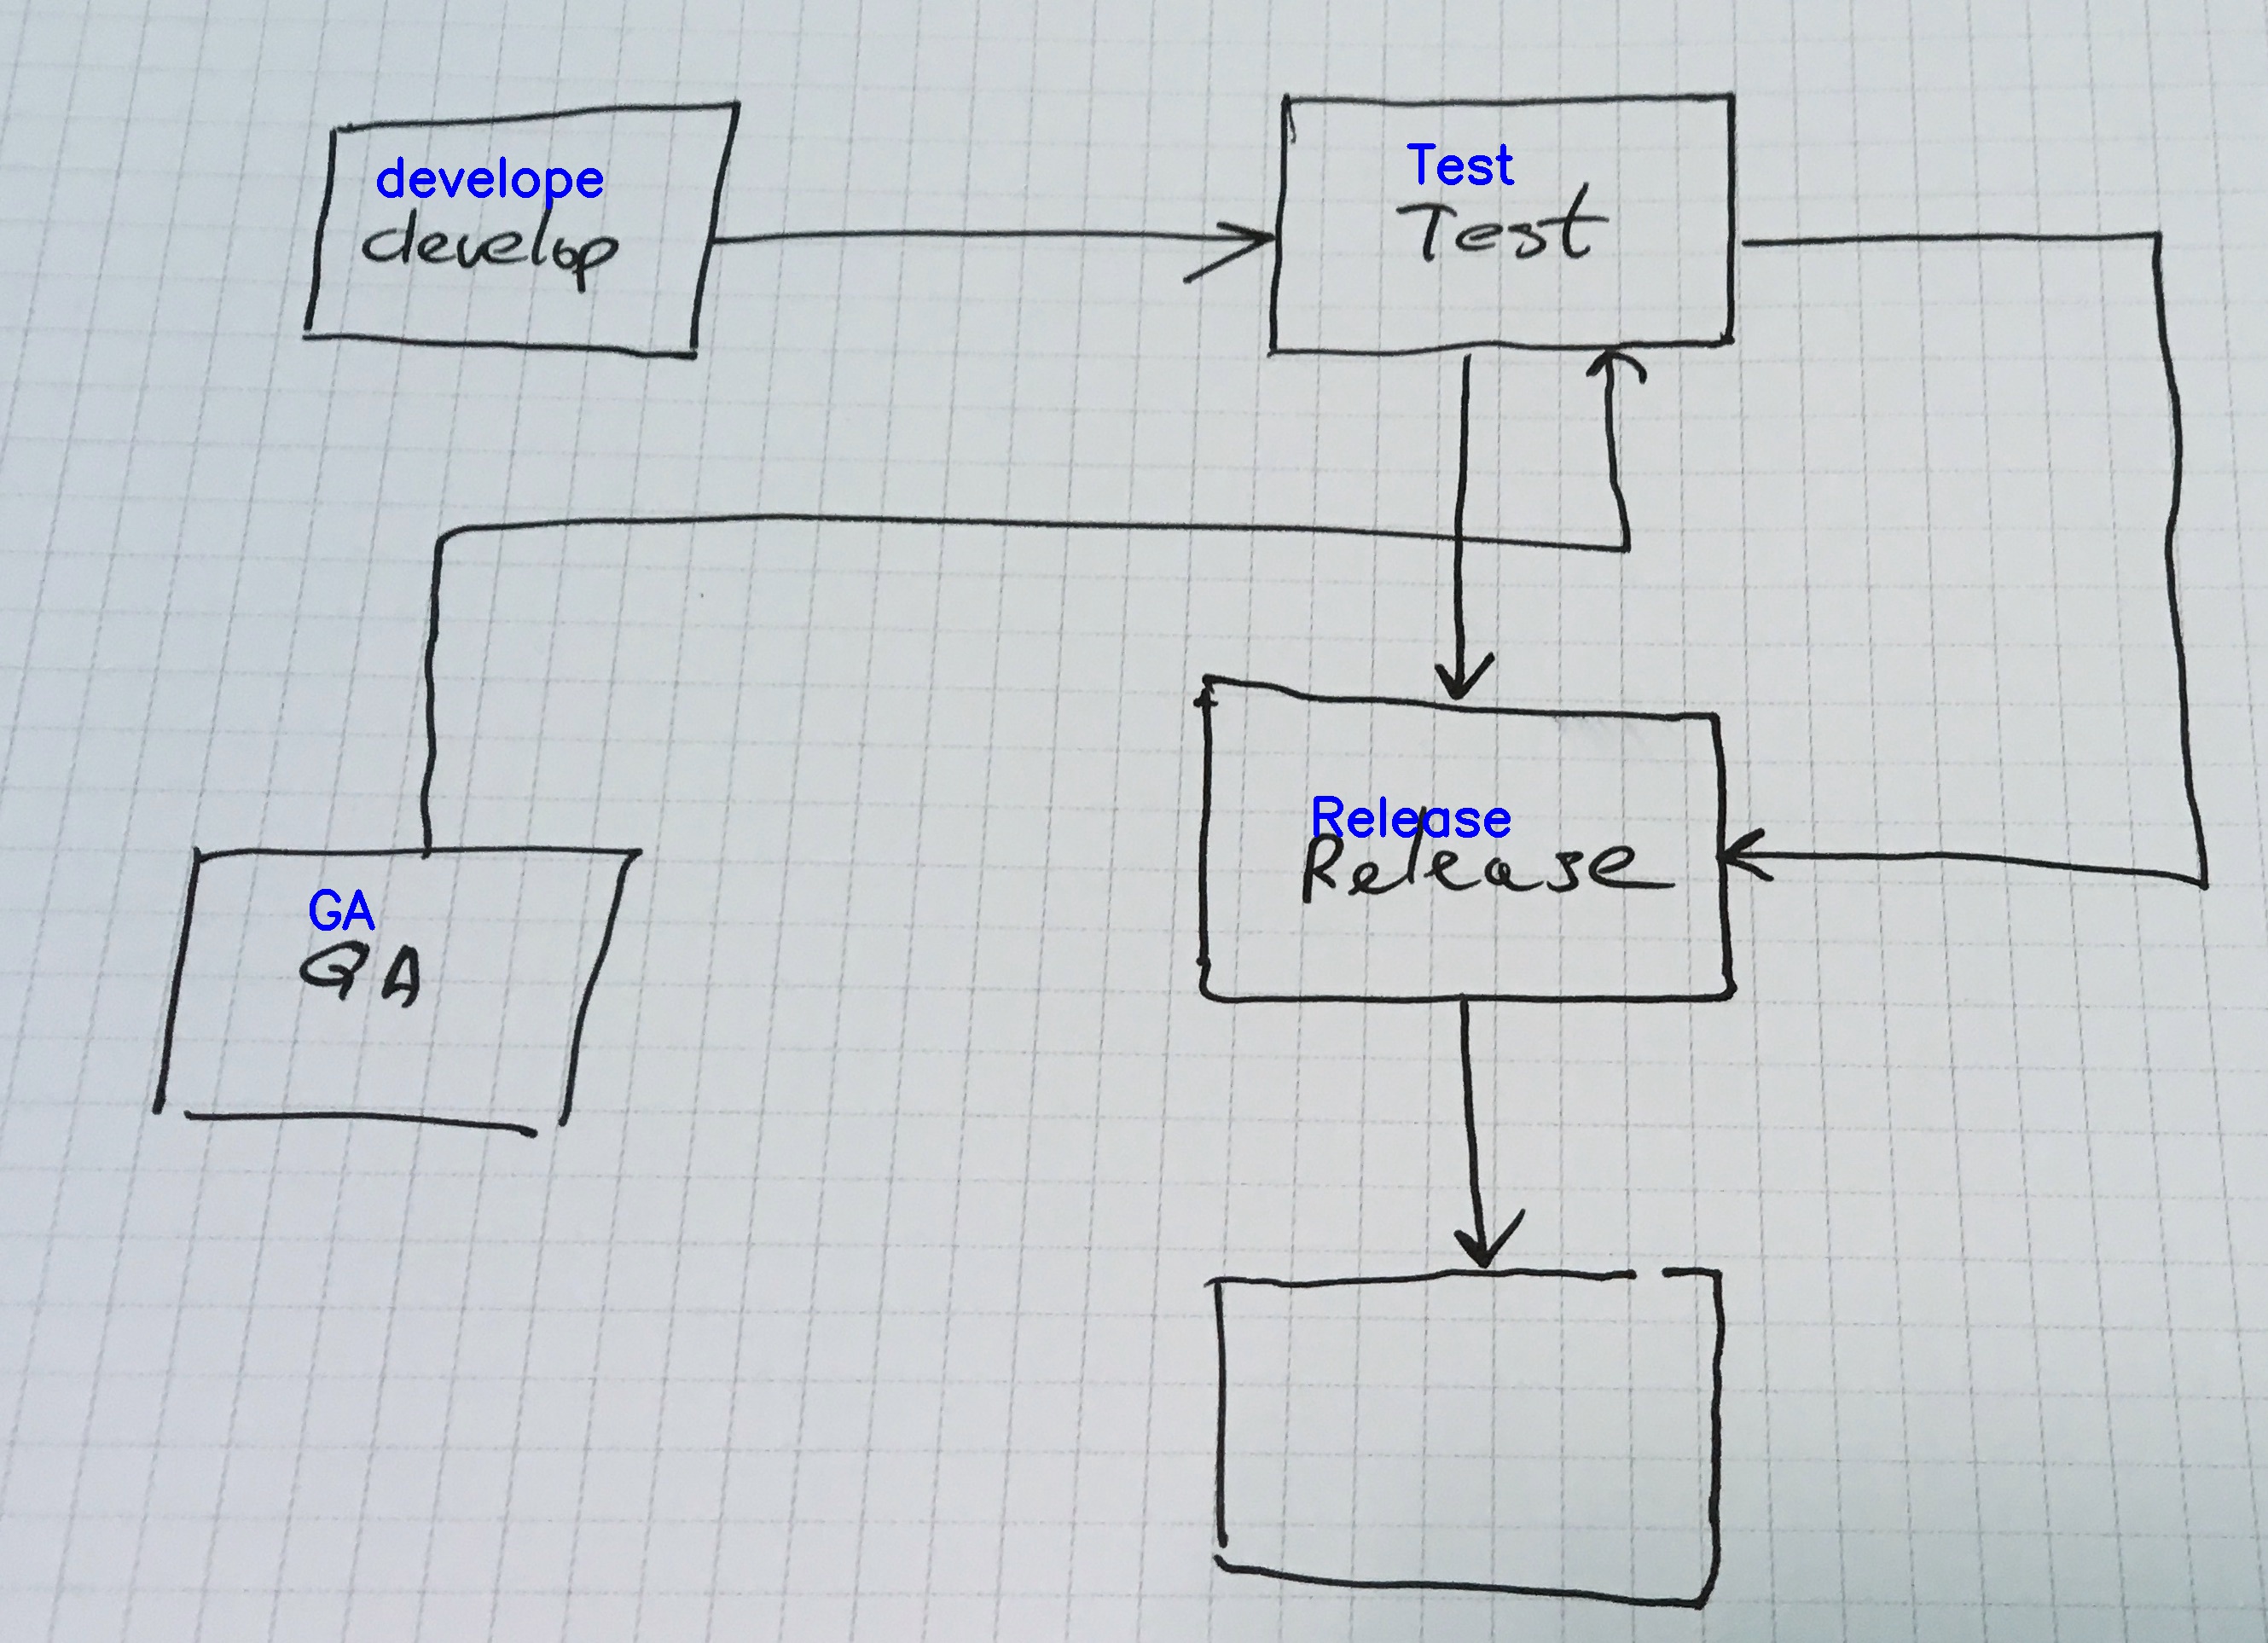 develope
develop
Test
Test
Release
Release
GA
QA